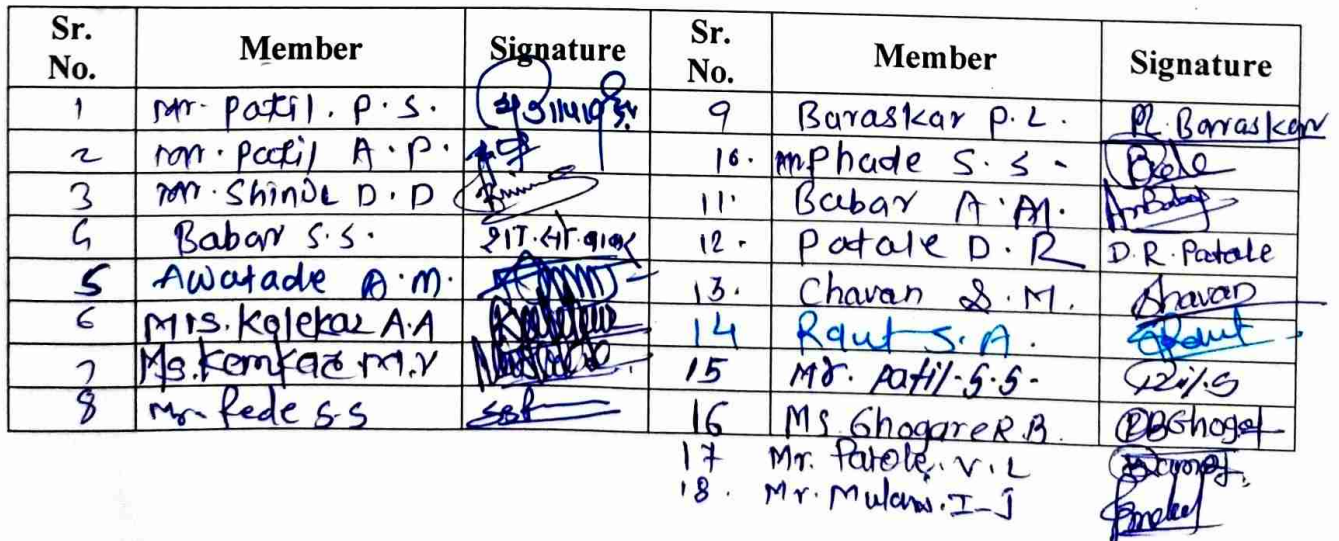 Sr. No. Member Signature Sr. No. Member Signature
1 Mr. Patil. P. S. 9 Baraskar P. L. PL. Barraskar
2 Mr. Patil A. P. 10. Mr Phade S. S.
3 Mr. Shinde D. D 11. Babar A. M. AmBabar
4 Babar S. S. 12. Patale D. R D. R. Patale
5 Awatade A. M. 13. Chavan S. M. Chavan
6 Mrs. Kalekar A.A 14 Raut S. A. Raut
7 Ms. Kemkar M.V 15 Mr. Patil S. S.
8 Mr. Pede S.S 16 Ms. Ghogare R.B. RBGhoge
17 Mr. Patole. V. L
18. Mr. Mulani. I-J